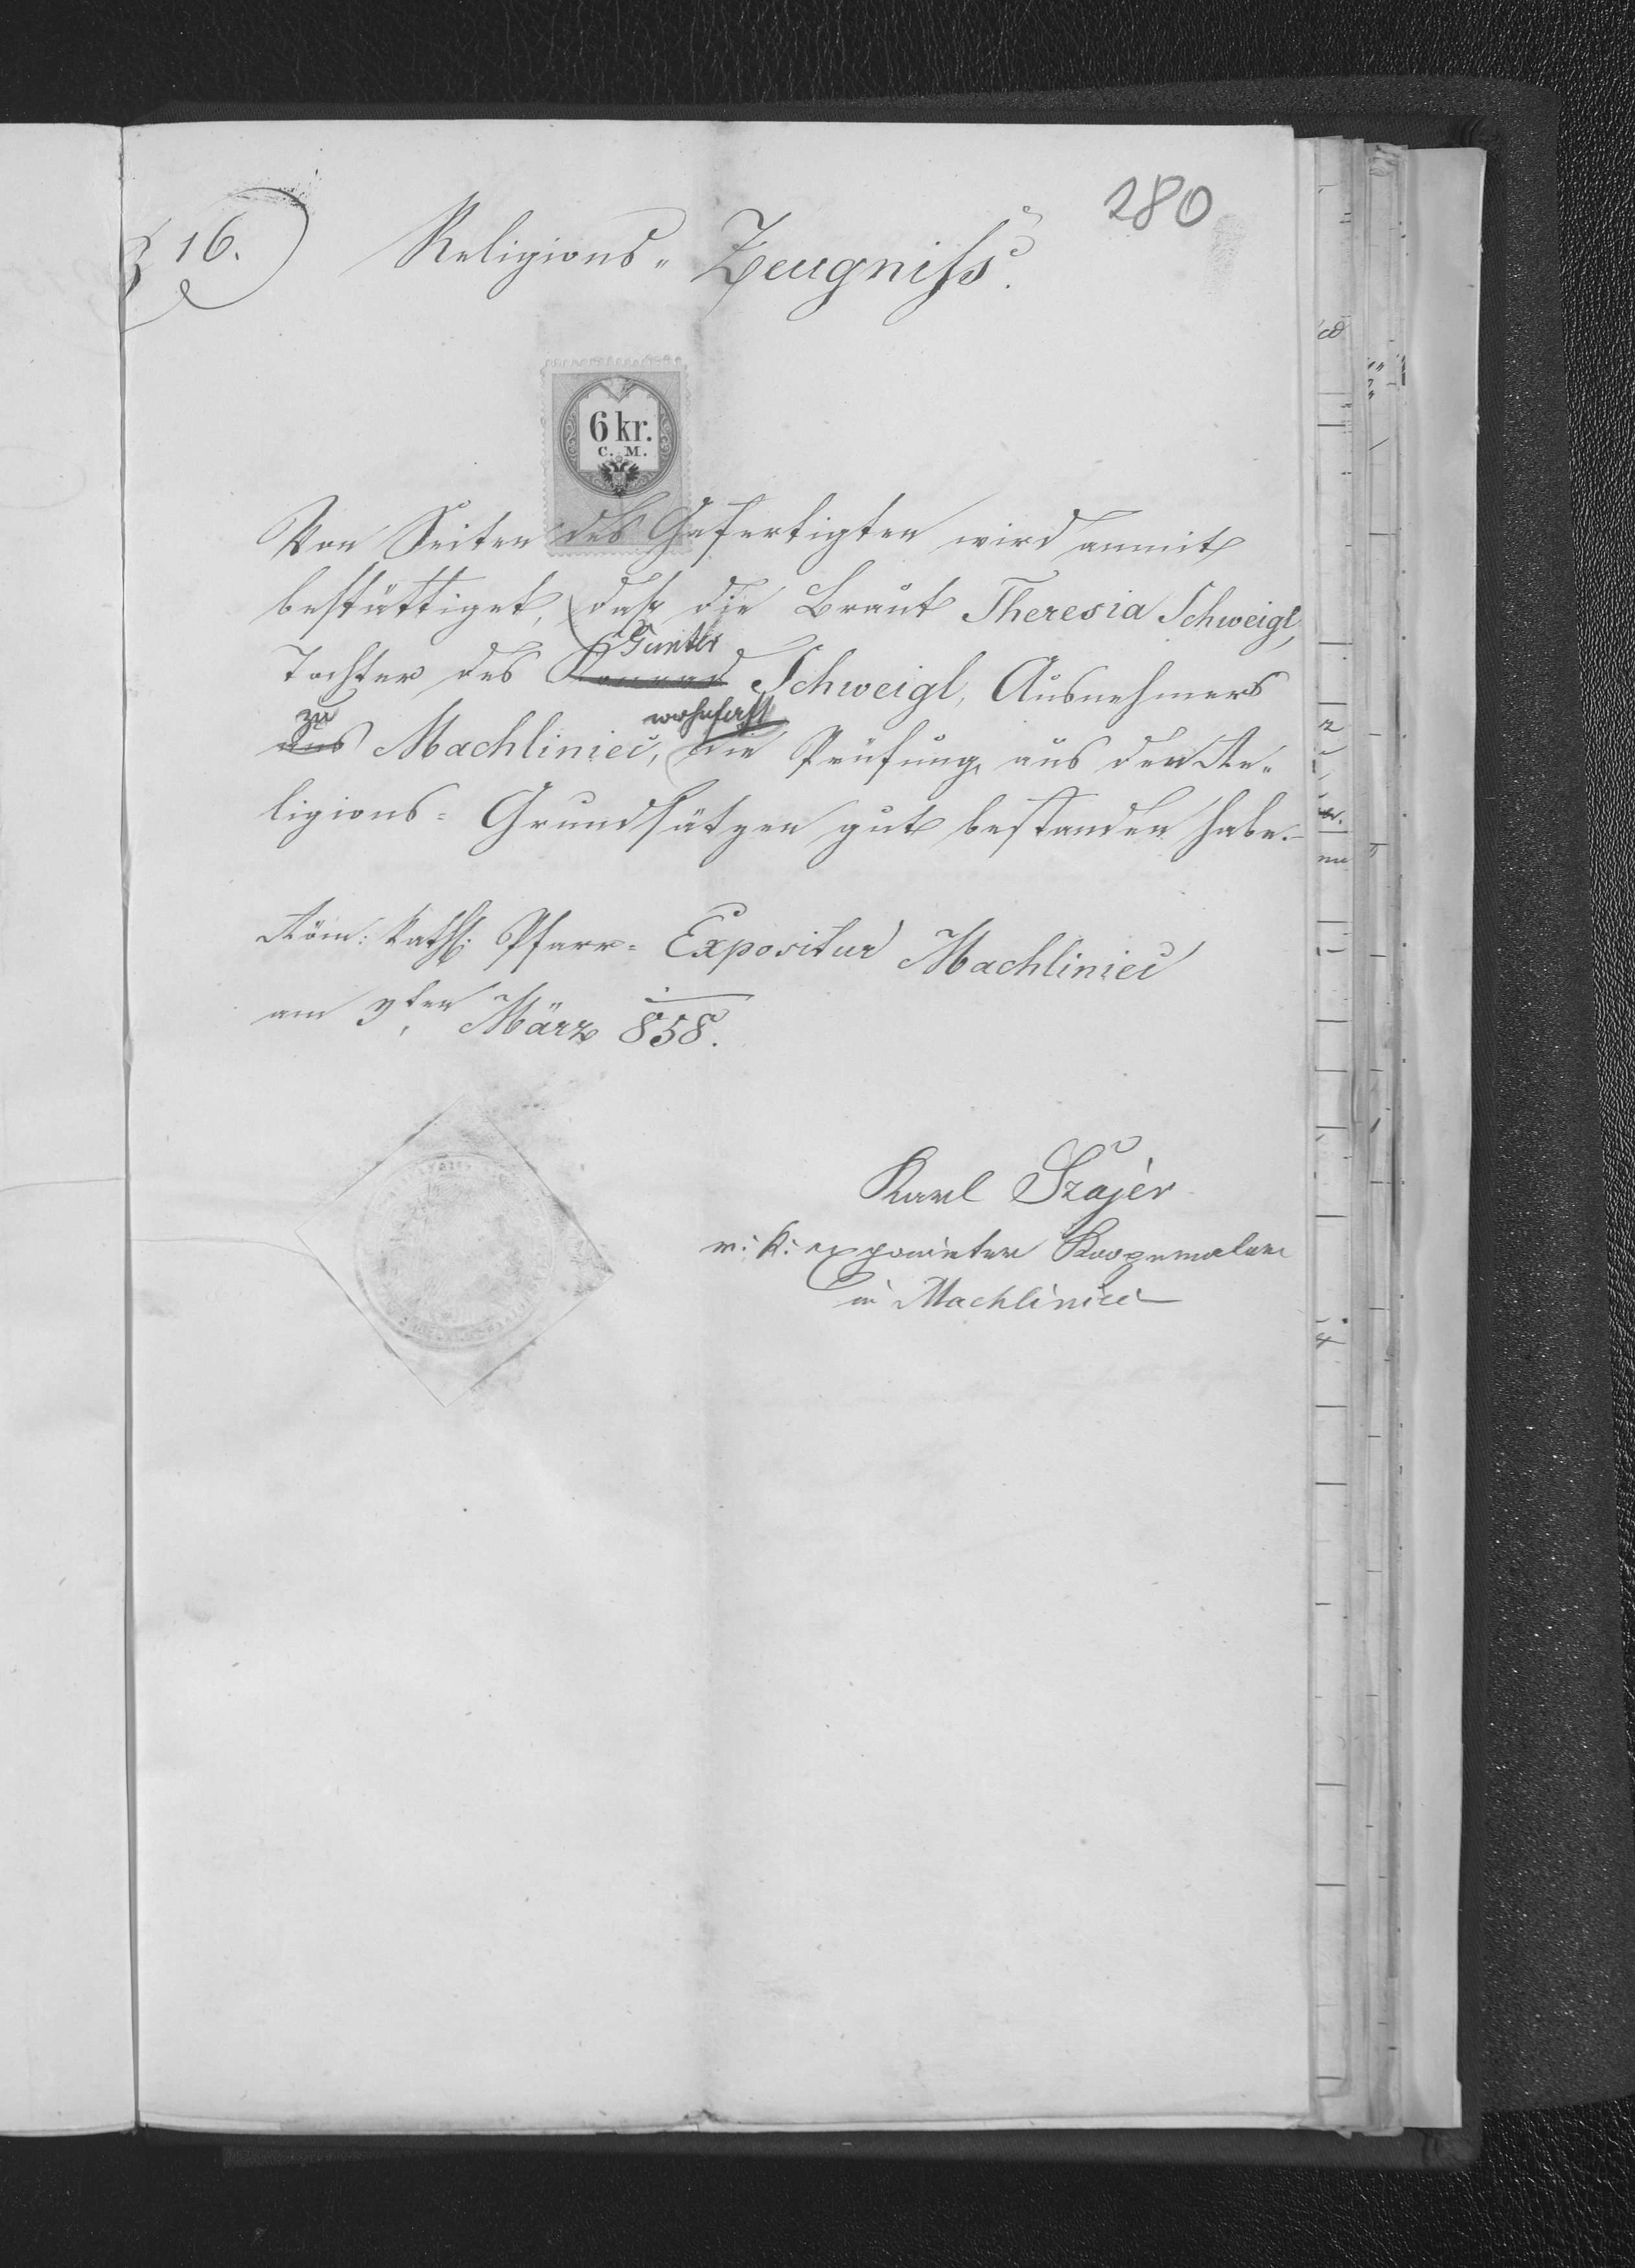 280
§ 16.
Religions- Zeugniß.
6 kr.
C. M.
Von Seiten des Gefertigten wird anmit
bestättiget, daß die Braut Theresia Schweigl,
Gunter
Tochter des Konrad Schweigl, Ausnehmers
zu wohnhaft
aus Machliniec, die Prüfung aus den Re-
ligions- Grundsätzen gut bestanden habe.-
Röm: Kath: Pfarr- Expositur Machliniec
am 9ten März 858.
Karl Szajer
r: k: exponirter Kooperator
in Machliniec